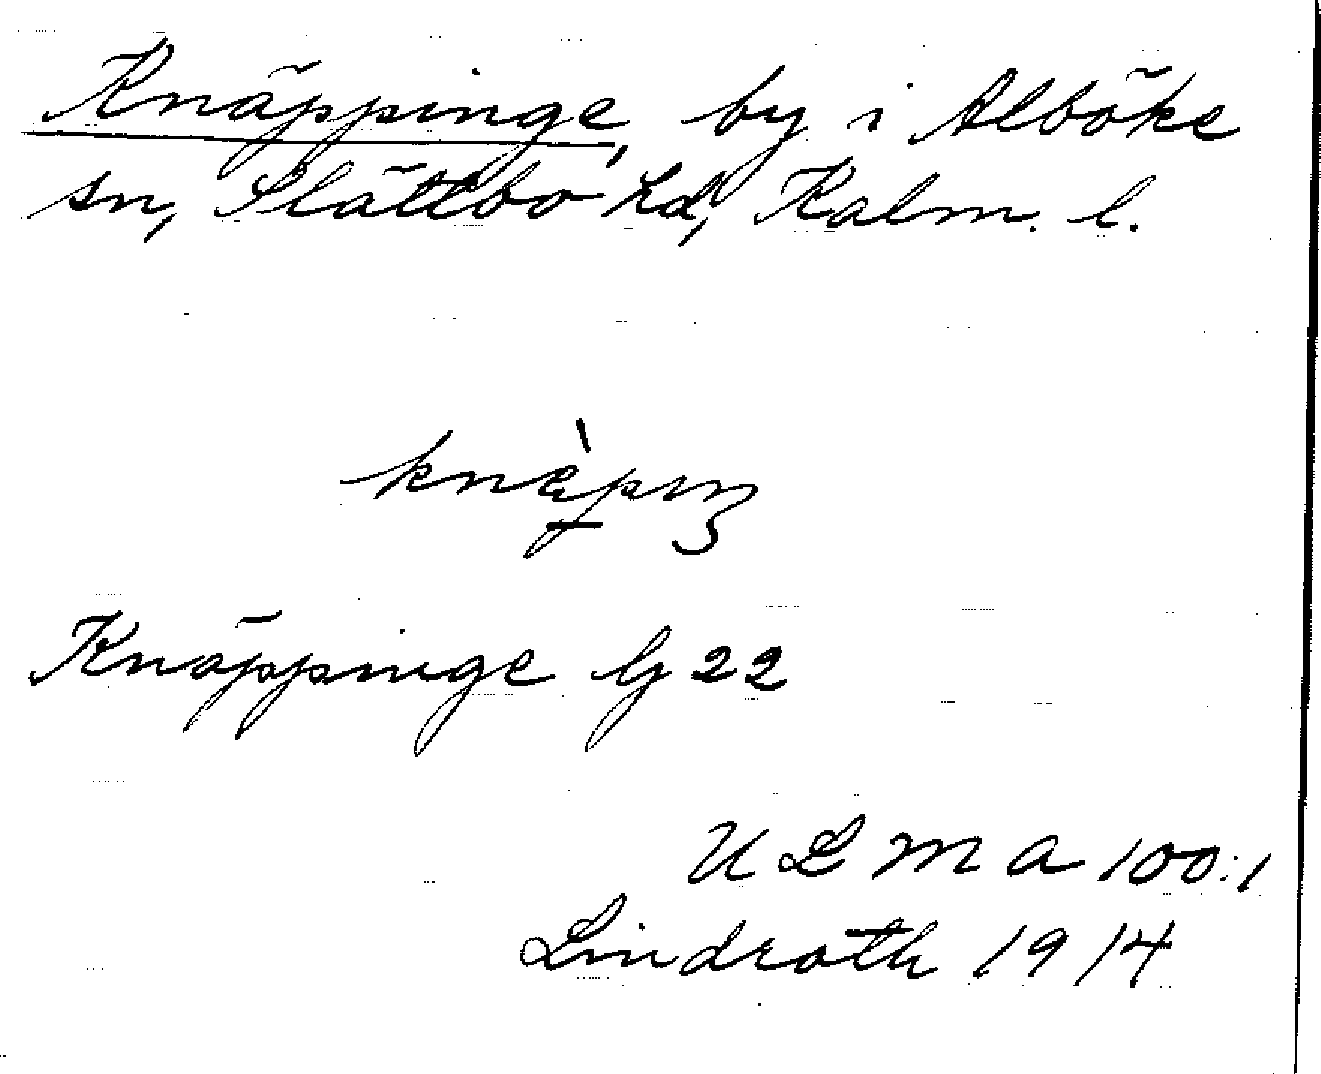 Knäppinge, by i Alböke
sn, Slättbo hd, Kalm. l.
Knäppinge G 22
U L M A 100:1
Lindroth 1914